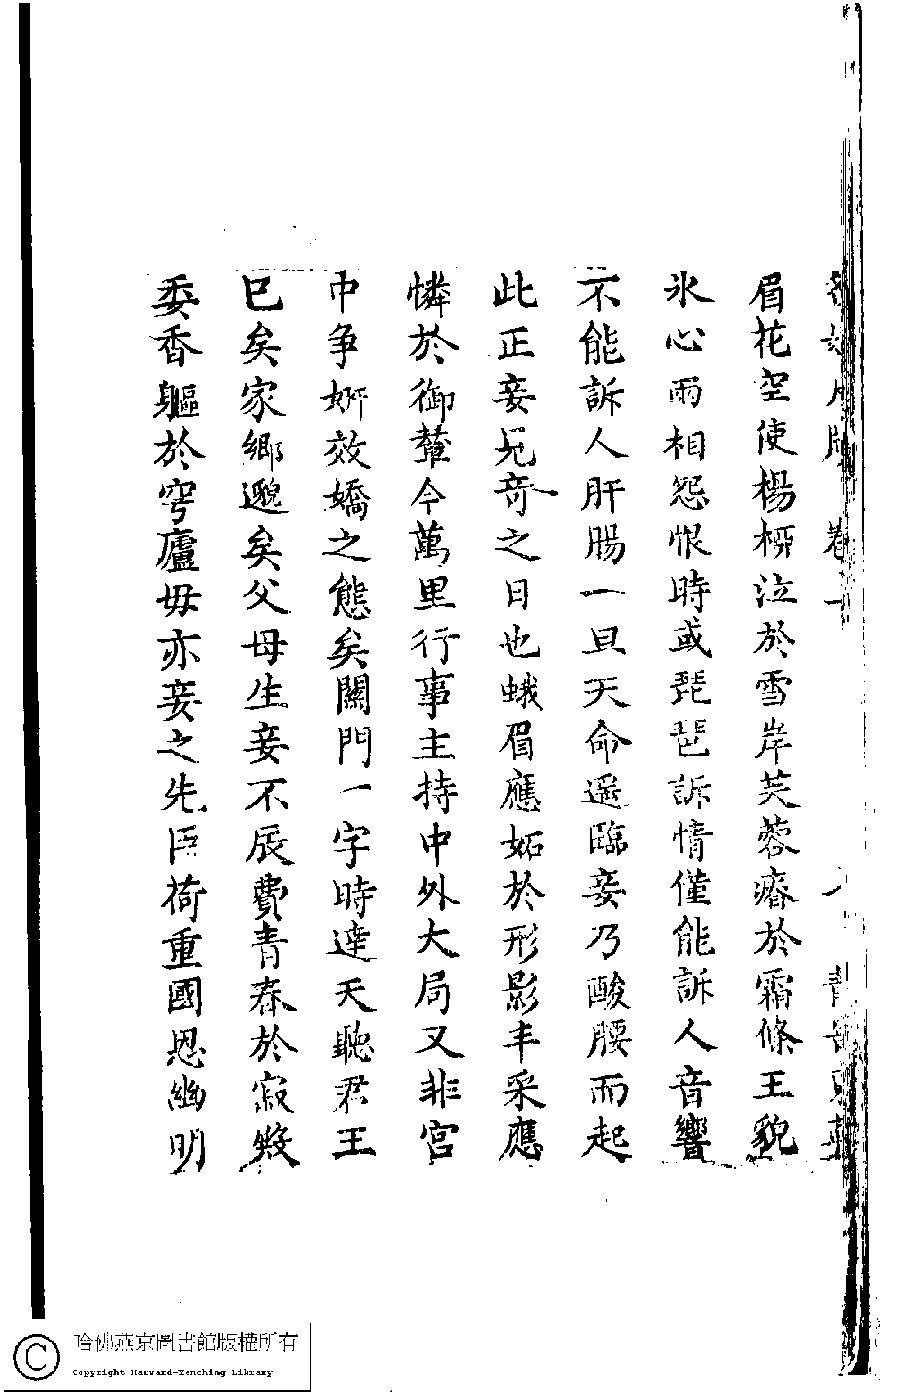 眉花空使楊柳泣於雪岸芙蓉瘠於霜條玉貌
氷心兩相怨恨時或琵琶訴情僅能訴人音響
不能訴人肝腸一旦天命遥臨妾乃酸腰而起
此正妾見奇之日也蛾眉應妬於形影丰采應
憐於御輦今萬里行事主持中外大局又非宮
中争妍效嬌之態矣關門一字時達天聽君王
已矣家鄉邈矣父母生妾不辰費青春於寂
委香軀於穹廬毋亦妾之先臣荷重國恩幽明
哈佛燕京圖書館版權所有
Copyright Harvard-Yenching Library